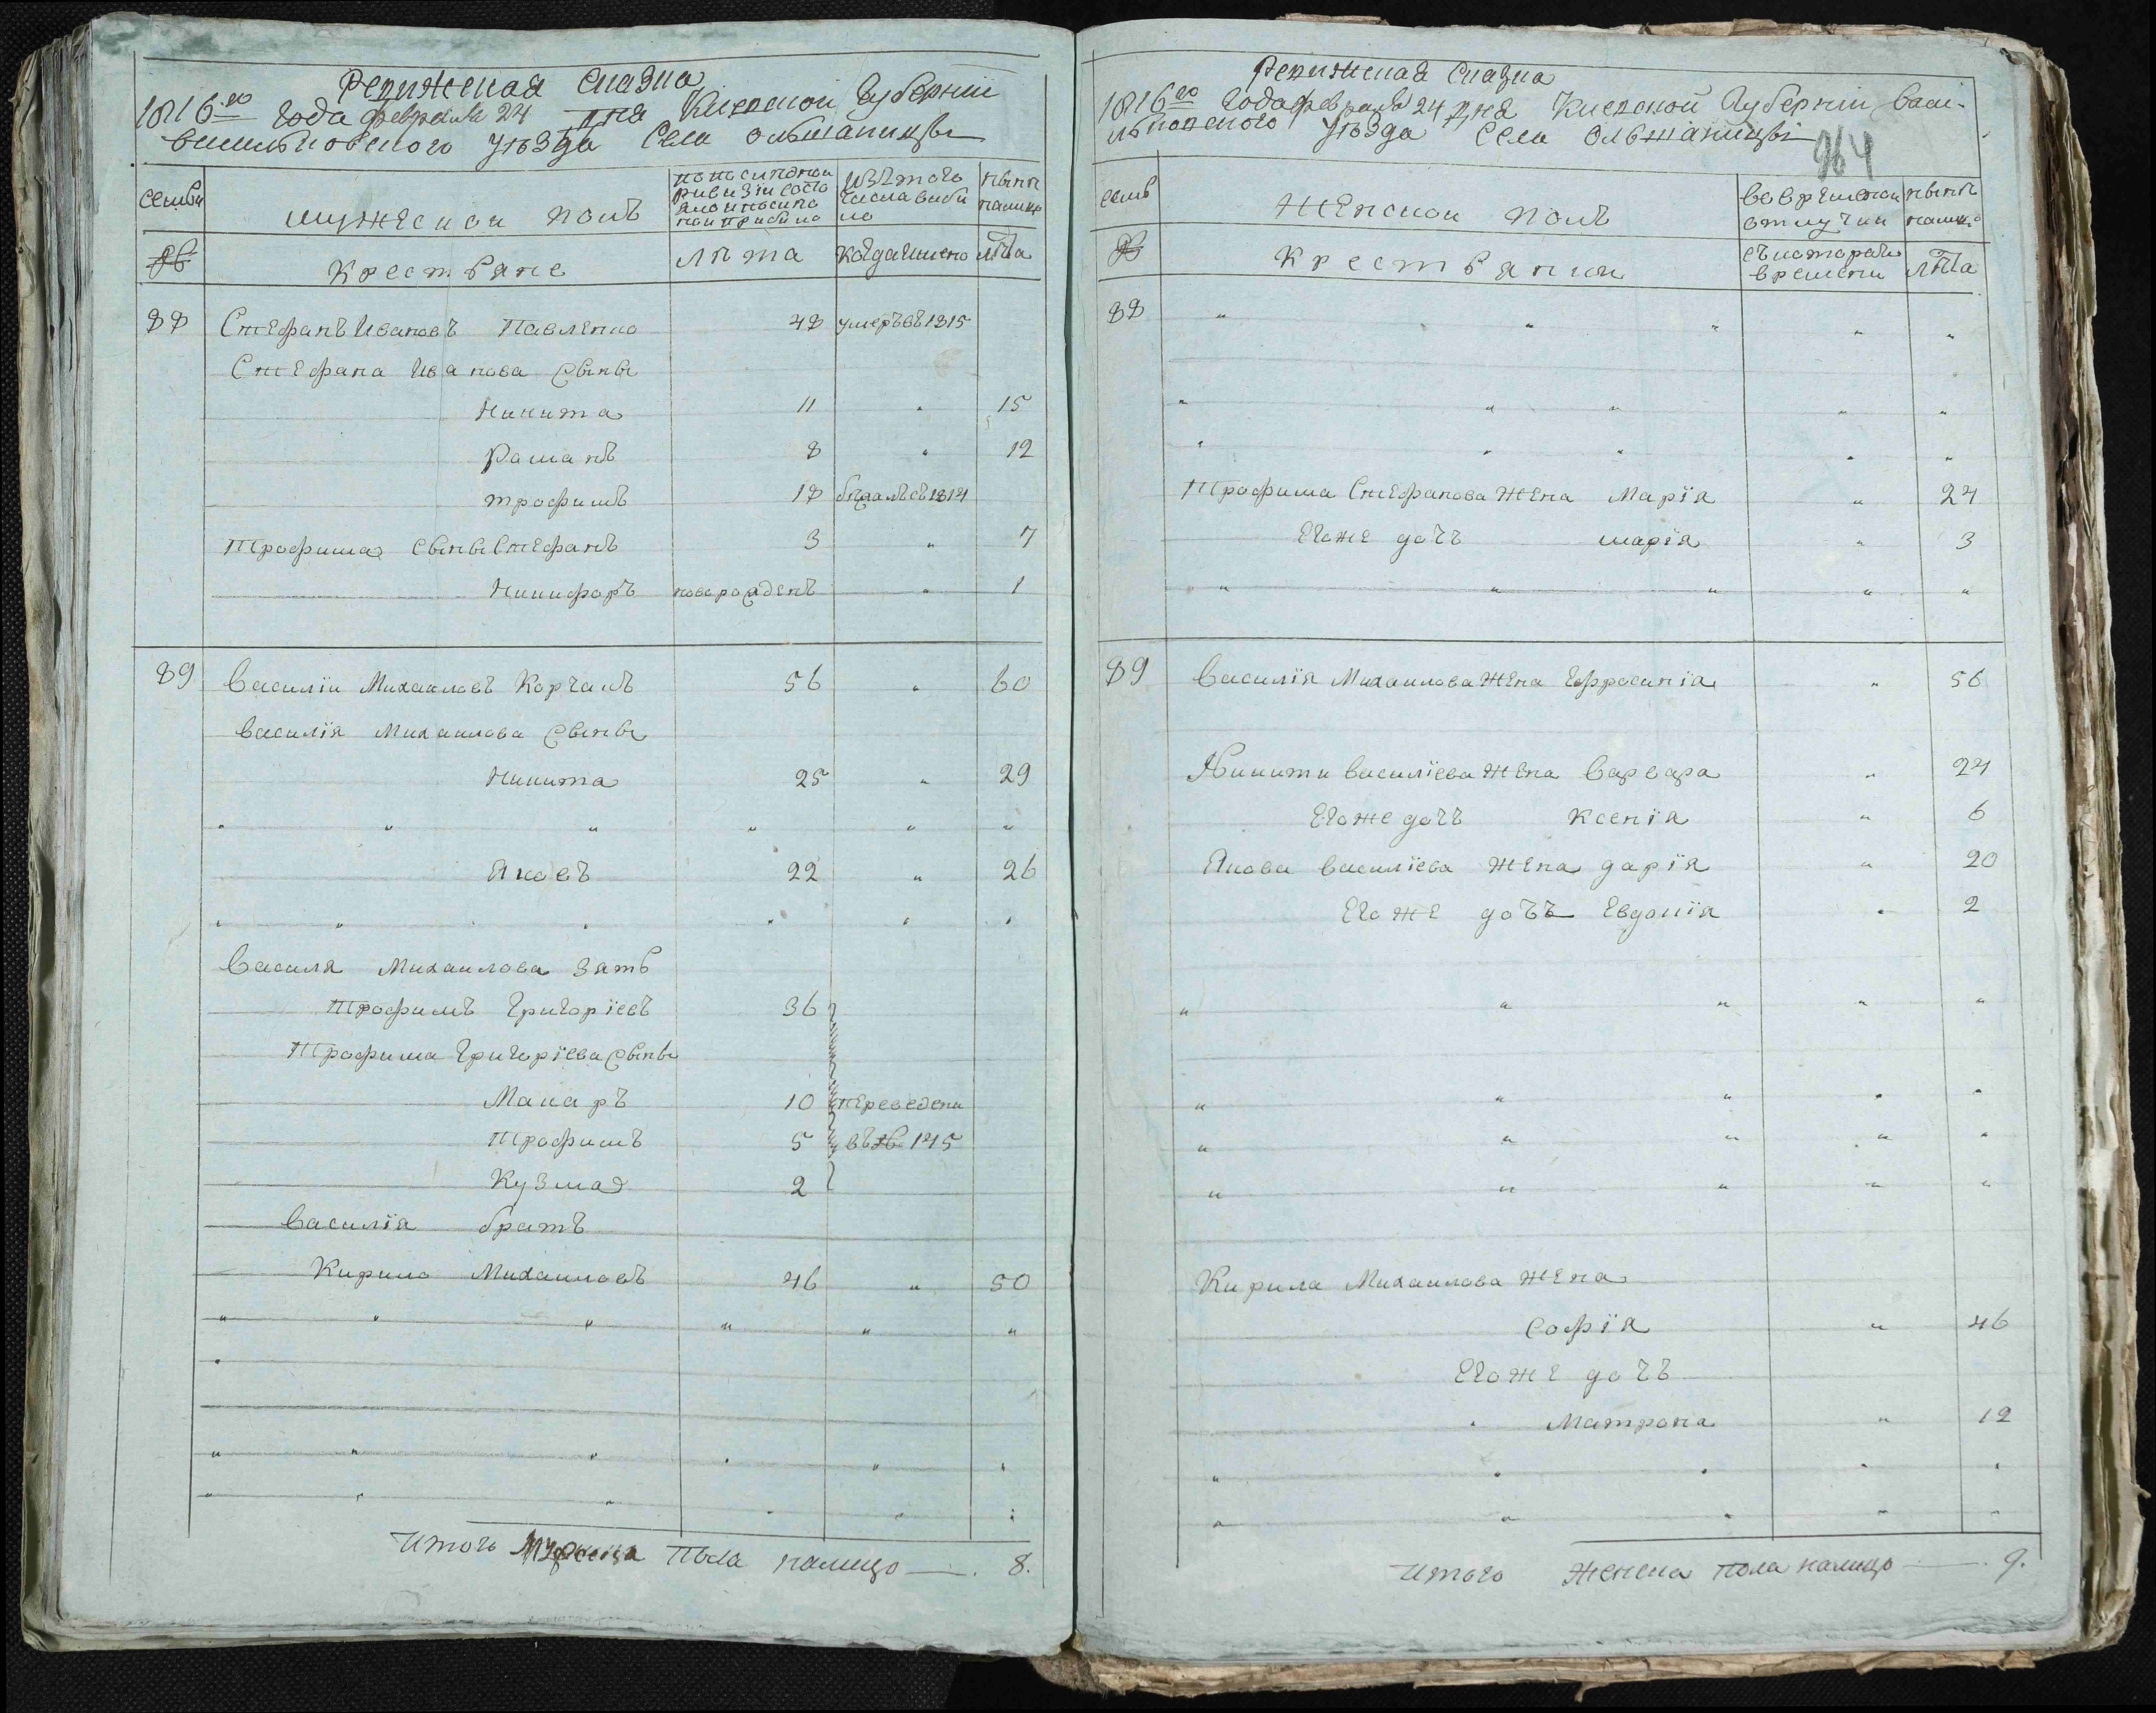 Ревижская сказка
1816го года февраля 24 дня Киевской Губернии
васильковского уѣзда Села Ольшаницы
семьи
мужеской полъ
по последной ревизiи состояло и после
изъ того числа выбыло
нынѣ налицо
№
Крестьяне
лѣта
когда имено
лѣта
88 Стефанъ Ивановъ Павленко 48 умеръ въ 1815
Стефана Иванова сыны
Никита 11 " 15
Раманъ 8 " 12
трофимъ 18 бѣжалъ съ 1814
Трофима сыны Стефанъ 3 " 7
Никифоръ новорожденъ " 1
89 Василiи Михаиловъ Корчакъ 56 " 60
василiя Михаилова сыны
Никита 25 " 29
" " " " " "
Яковъ 22 " 26
" " " " " "
Василя Михаилова зять
Трофимъ Григорiевъ 36
Трофима Григорiева сыны
Макаръ 10 переведени
Трофимъ 5 въ № 145
Кузма 2
василiя братъ
Кирило Михаиловъ 46 " 50
" " " " " "
"
" " " " " "
" " " " " "
Итого Мужеска Пола налицо — 8.
Ревижская Сказка
1816го года февраля 24 дня Киевской Губернiи Васи-
льковского уѣзда Села Ольшаницы
264
семь
Женской полъ
во временой отлучки
нынѣ налицо
№
Крестьянки
съ которого времени
лѣта
88 " " " " "
" " " " "
" " " " "
Трофима Стефанова жена Марiя " 24
Егоже дочъ марiя " 3
" " " " "
89 Василiя Михаилова жена Ефросинiя " 56
Никити василiева жена Варвара " 24
Егоже дочъ Ксенiя " 6
Якова василiева жена дарiя " 20
Егоже дочъ Евдокiя " 2
" " " " "
" " " " "
" " " " "
" " " " "
Кирила Михаилова жена
Софiя " 46
Егоже дочъ
" Матрона " 12
" " " " "
" " " " "
Итого Женска пола налицо — 9.